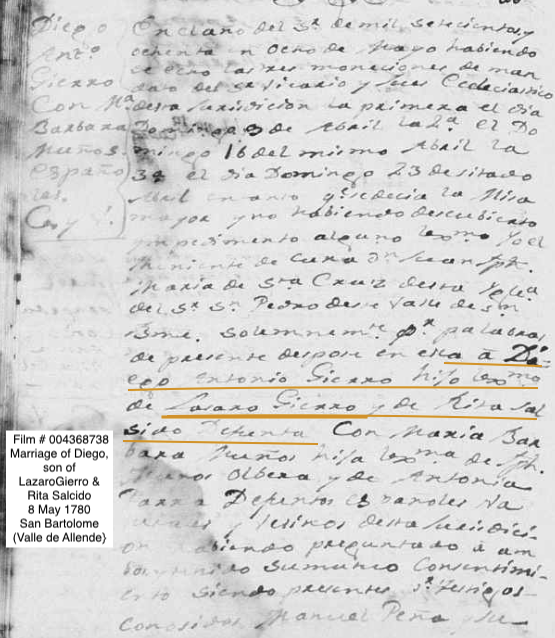 Diego
Antº
Gierro
Con Mª
Barbara
Muños
españo
les.
Cas y V.
En el año del Sr de mil Setecientos y
ochenta en ocho de Mayo habiendo
se echo las tres moniciones de man
dato del Sr Vicario y Jues Eclesiastico
desta Jurisdicion la primera el dia
Domingo 9 de Abril la 2ª el Do
mingo 16 del mismo Abril la
3ª el dia Domingo 23 de sitado
Abril en que se decia la Misa
mayor y no habiendo descubierto
ympedimento alguno lexmo Yo el
theniente de cura Dn Juan Jph.
Maria de Sta Cruz desta Yglª
del Sr Sn Pedro deste Valle de Sn
Bme. solemnemte pr palabras
de presente despose en esta á Di
ego Antonio Gierro hijo lexmo
de Lasaro Gierro y de Rita Sal
sido Defenta Con Maria Bar
bara Muños hija lexma de Jph.
Muños Olbera y de Antonia
Parra Defentos españoles Na
turales y Vesinos desta Jurisdici
on habiendo preguntado á am
bos y tenido su mutuo Consentimi
ento siendo presentes pr testigos
Conosidos Manuel Peña y su
Film # 004368738
Marriage of Diego,
son of
LazaroGierro &
Rita Salcido
8 May 1780
San Bartolome
(Valle de Allende}